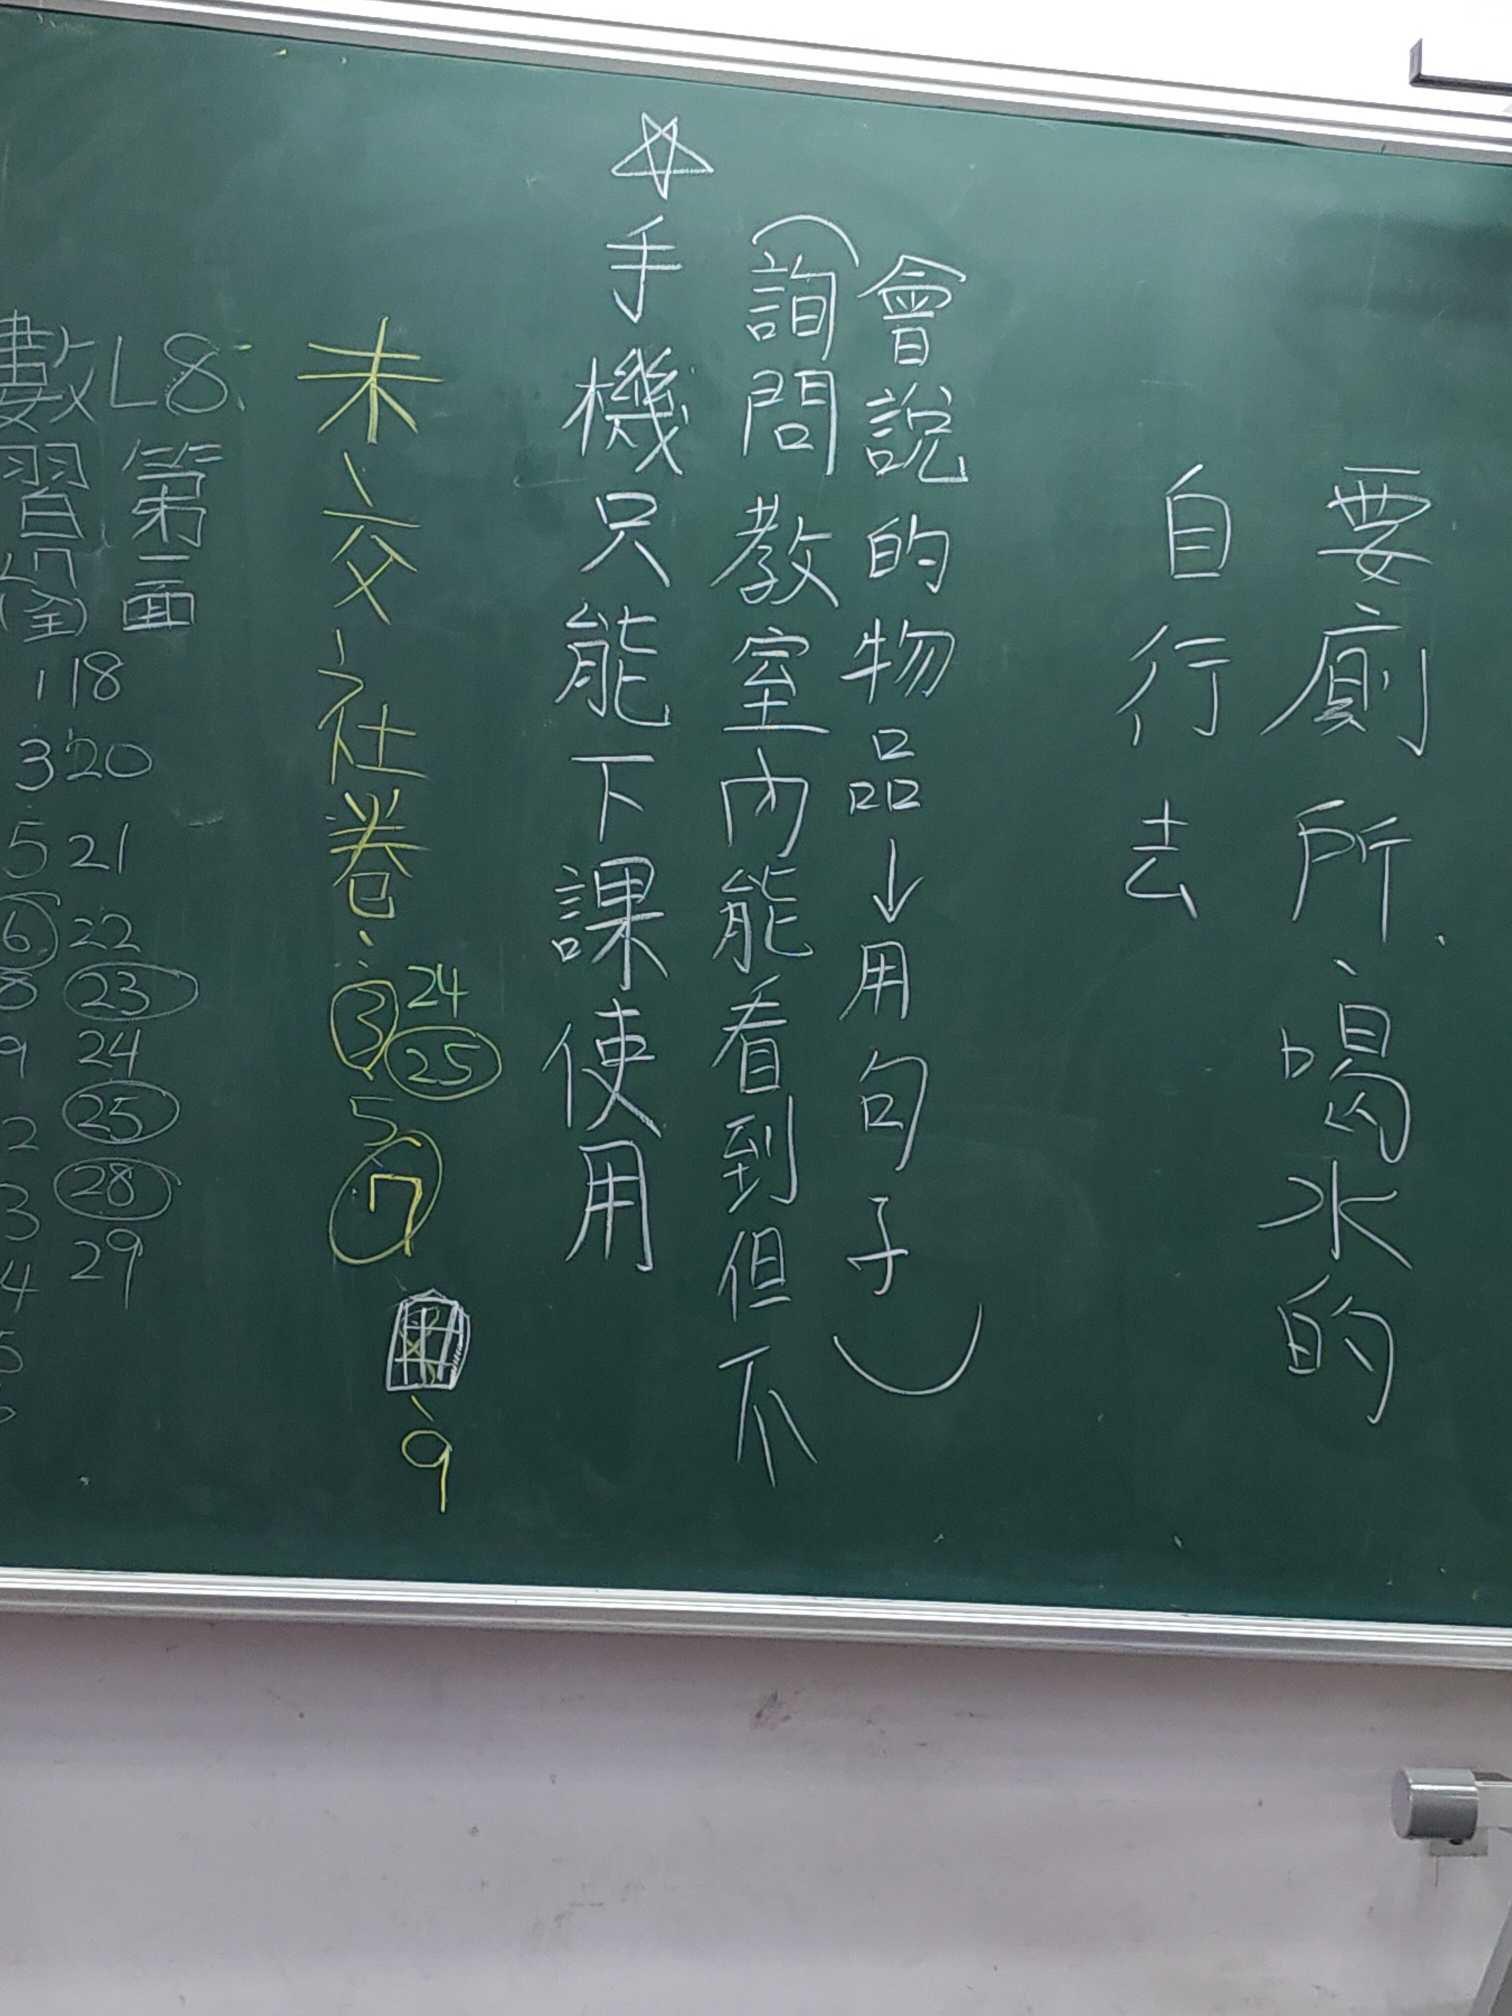 要廁所、喝水的
自行去
會說的物品↓用句子)
(詢問教室內能看到但不
☆手機只能下課使用
未交社卷:
③ 24
5 ㉕
⑦
、9
數L8、
習 第
L7 一
(全) 面
1 18
3 20
5 21
⑥ 22
8 ㉓
9 24
㉕
㉘
29